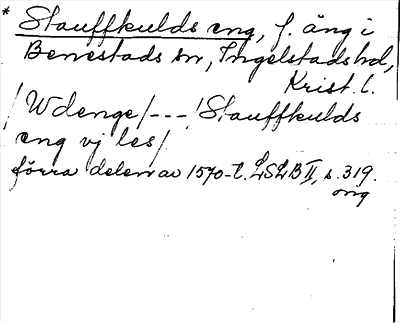 * Stauffkulds eng, f. äng i
Benestads sn, Ingelstads hd,
Krist. l.
/Wdenge/---/Stauffkulds
eng vj les/
förra delen av 1570-t. LSLB II, s. 319.
orig